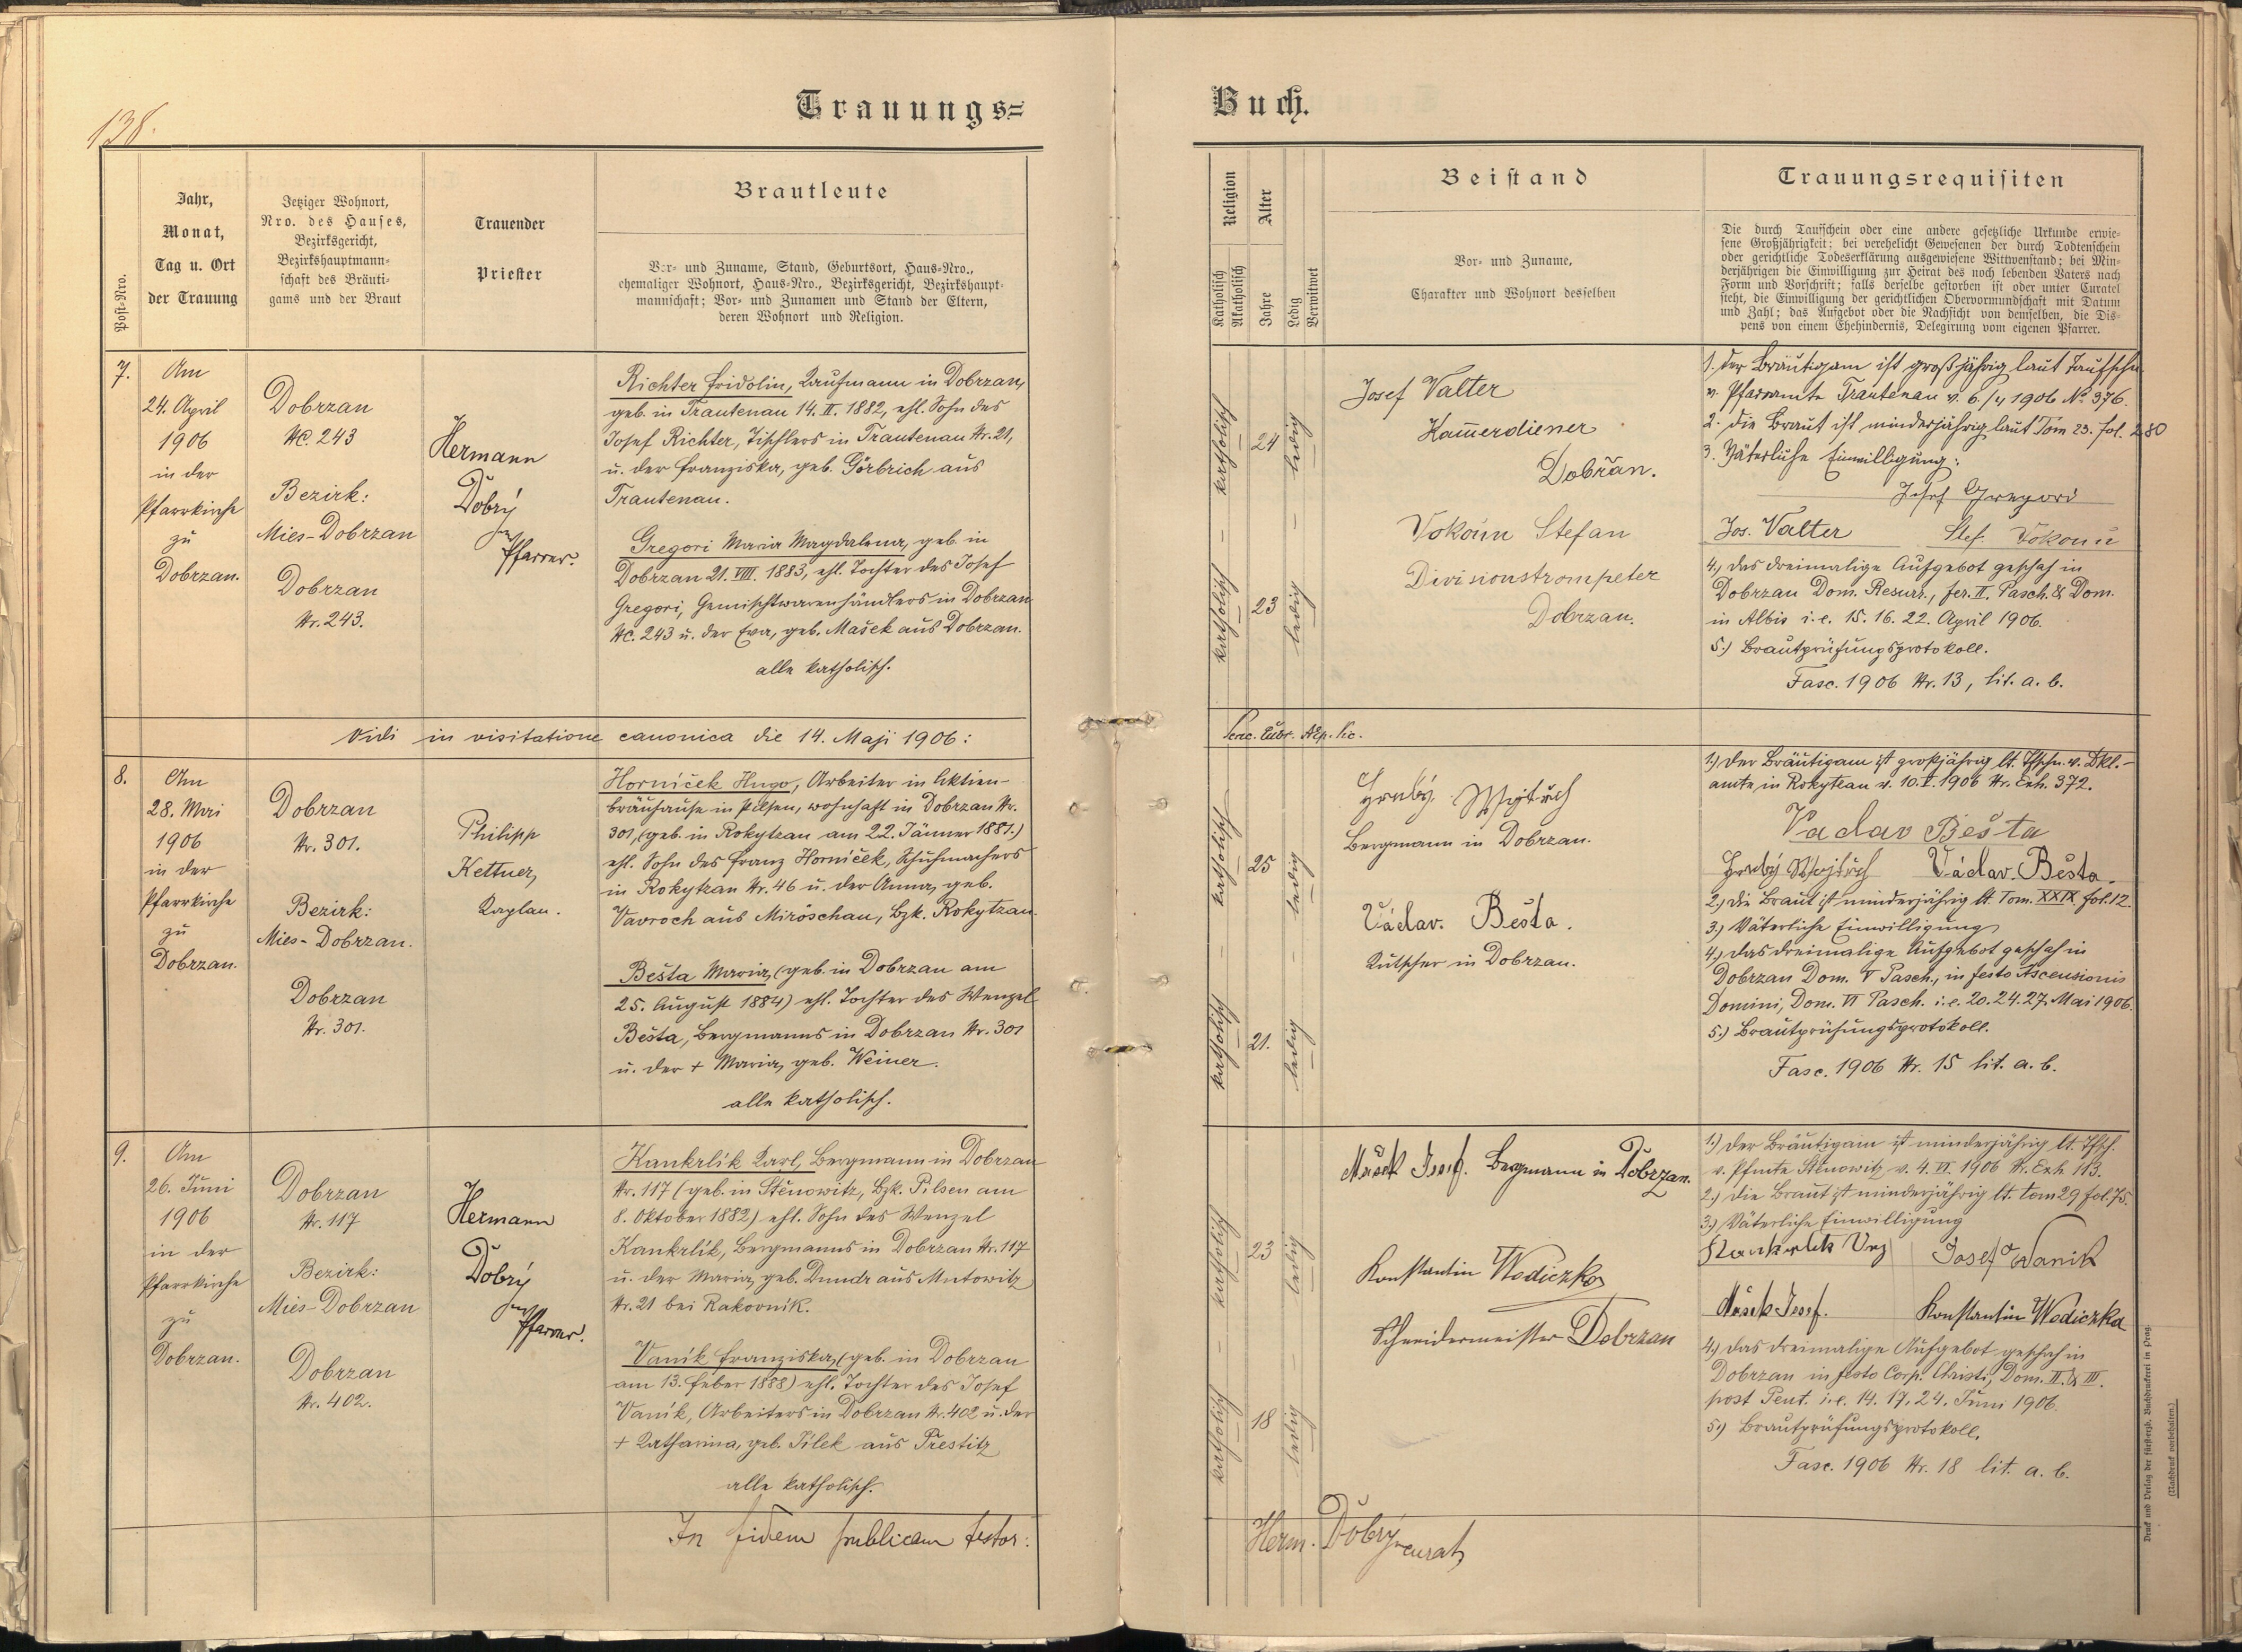 138.
Trauungs=
Post-Nro.
Jahr,
Monat,
Tag u. Ort
der Trauung
Jetziger Wohnort,
Nro. des Hauses,
Bezirksgericht,
Bezirkshauptmann=
schaft des Bräuti=
gams und der Braut
Trauender
Priester
Brautleute
Vor- und Zuname, Stand, Geburtsort, Haus-Nro.,
ehemaliger Wohnort, Haus-Nro., Bezirksgericht, Bezirkshaupt-
mannschaft; Vor- und Zunamen und Stand der Eltern,
deren Wohnort und Religion.
7.
Am
24. April
1906
in der
Pfarrkirche
zu
Dobrzan.
Dobrzan
NC. 243
Bezirk:
Mies-Dobrzan
Dobrzan
Nr. 243.
Hermann
Dobrý
Pfarrer.
Richter Fridolin, Kaufmann in Dobrzan,
geb. in Trautenau 14. II. 1882, ehl. Sohn des
Josef Richter, Tischlers in Trautenau Nr. 21,
u. der Franziska, geb. Görbrich aus
Trautenau.
Gregori Maria Magdalena, geb. in
Dobrzan 21. VIII. 1883, ehl. Tochter des Josef
Gregori, Gemischtwarenhändlers in Dobrzan
NC. 243 u. der Eva, geb. Mašek aus Dobrzan.
alle katholisch.
Vidi in visitatione canonica die 14. Maji 1906:
8.
Am
28. Mai
1906
in der
Pfarrkirche
zu
Dobrzan.
Dobrzan
Nr. 301.
Bezirk:
Mies-Dobrzan.
Dobrzan
Nr. 301.
Philipp
Kettner,
Kaplan.
Horníček Hugo, Arbeiter in Aktien-
bräuhause in Pilsen, wohnhaft in Dobrzan Nr.
301, (geb. in Rokytzan am 22. Jänner 1881.)
ehl. Sohn des Franz Horníček, Schuhmachers
in Rokytzan Nr. 46 u. der Anna, geb.
Vavroch aus Miröschau, Bzk. Rokytzan.
Bešta Maria, (geb. in Dobrzan am
25. August 1884) ehl. Tochter des Wenzel
Bešta, Bergmanns in Dobrzan Nr. 301
u. der + Maria, geb. Weiner.
alle katholisch.
9.
Am
26. Juni
1906
in der
Pfarrkirche
zu
Dobrzan.
Dobrzan
Nr. 117
Bezirk:
Mies-Dobrzan
Dobrzan
Nr. 402.
Hermann
Dobrý
Pfarrer.
Kankrlík Karl, Bergmann in Dobrzan
Nr. 117 (geb. in Stěnowitz, Bzk. Pilsen am
8. Oktober 1882) ehl. Sohn des Wenzel
Kankrlík, Bergmanns in Dobrzan Nr. 117
u. der Maria, geb. Dundr aus Mutowitz
Nr. 21 bei Rakovník.
Vaník Franziska, (geb. in Dobrzan
am 13. Feber 1888) ehl. Tochter des Josef
Vaník, Arbeiters in Dobrzan Nr. 402 u. der
+ Katharina, geb. Pílek aus Prestitz
alle katholisch.
In fidem publicam testor:
Buch.
Religion
Katholisch
Akatholisch
Alter
Jahre
Ledig
Verwitwet
Beistand
Vor- und Zuname,
Charakter und Wohnort desselben
Trauungsrequisiten
Die durch Taufschein oder eine andere gesetzliche Urkunde erwie=
sene Großjährigkeit; bei verehelicht Gewesenen der durch Todtenschein
oder gerichtliche Todeserklärung ausgewiesene Wittwenstand; bei Min=
derjährigen die Einwilligung zur Heirat des noch lebenden Vaters nach
Form und Vorschrift; falls derselbe gestorben ist oder unter Curatel
steht, die Einwilligung der gerichtlichen Obervormundschaft mit Datum
und Zahl; das Aufgebot oder die Nachsicht von demselben, die Dis=
pens von einem Ehehindernis, Delegirung vom eigenen Pfarrer.
katholisch
24
ledig
katholisch
23
ledig
Josef Valter
Kamerdiener
Dobřan.
Vokoun Stefan
Divisionstrompeter
Dobrzan.
1. Der Bräutigam ist großjährig laut Taufschn.
v. Pfarramte Trautenau v. 6./4 1906 No 376.
2. die Braut ist minderjährig laut Tom 23. fol. 280
3. Väterliche Einwilligung:
Josef Gregori
Jos. Valter Stef. Vokoun
4.) das dreimalige Aufgebot geschah in
Dobrzan Dom. Resurr., fer. II. Pasch. & Dom.
in Albis i. e. 15. 16. 22. April 1906.
5.) Brautprüfungsprotokoll.
Fasc. 1906 Nr. 13, lit. a. b.
katholisch
25
ledig
katholisch
21.
ledig
Hrubý Wojtěch
Bergmann in Dobrzan.
Václav. Bešta.
Kutscher in Dobrzan.
1.) Der Bräutigam ist großjährig lt. Tfschn. v. Dkl.-
amte in Rokytzan v. 10. I. 1906 Nr. Exh. 372.
Vaclav Bešta
Hrubý Wojtěch Václav. Bešta.
2.) die Braut ist minderjährig lt. Tom. XXIX. fol. 12.
3.) Väterliche Einwilligung
4.) das dreimalige Aufgebot geschah in
Dobrzan Dom. V Pasch., in festo Ascensionis
Domini, Dom. VI Pasch. i. e. 20. 24. 27. Mai 1906.
5.) Brautprüfungsprotokoll.
Fasc. 1906 Nr. 15 lit. a. b.
katholisch
23
ledig
katholisch
18
ledig
Mašek Josef. Bergmann in Dobrzan.
Konstantin Wodiczka
Schneidermeister Dobrzan
1.) Der Bräutigam ist minderjährig lt. Tfsch.
v. Pfmte Stěnowitz v. 4. VI. 1906 Nr. Exh. 113.
2.) die Braut ist minderjährig lt. tom 29 fol. 75.
3.) Väterliche Einwilligung
Josef Wanik
Mašek Josef. Konstantin Wodiczka
4.) das dreimalige Aufgebot geschah in
Dobrzan in festo Corp. Christi, Dom. II. & III.
post Pent. i. e. 14. 17. 24. Juni 1906.
5.) Brautprüfungsprotokoll.
Fasc. 1906 Nr. 18 lit. a. b.
Herm. Dobrý curat
Druck und Verlag der fürsterzb. Buchdruckerei in Prag.
(Nachdruck vorbehalten.)